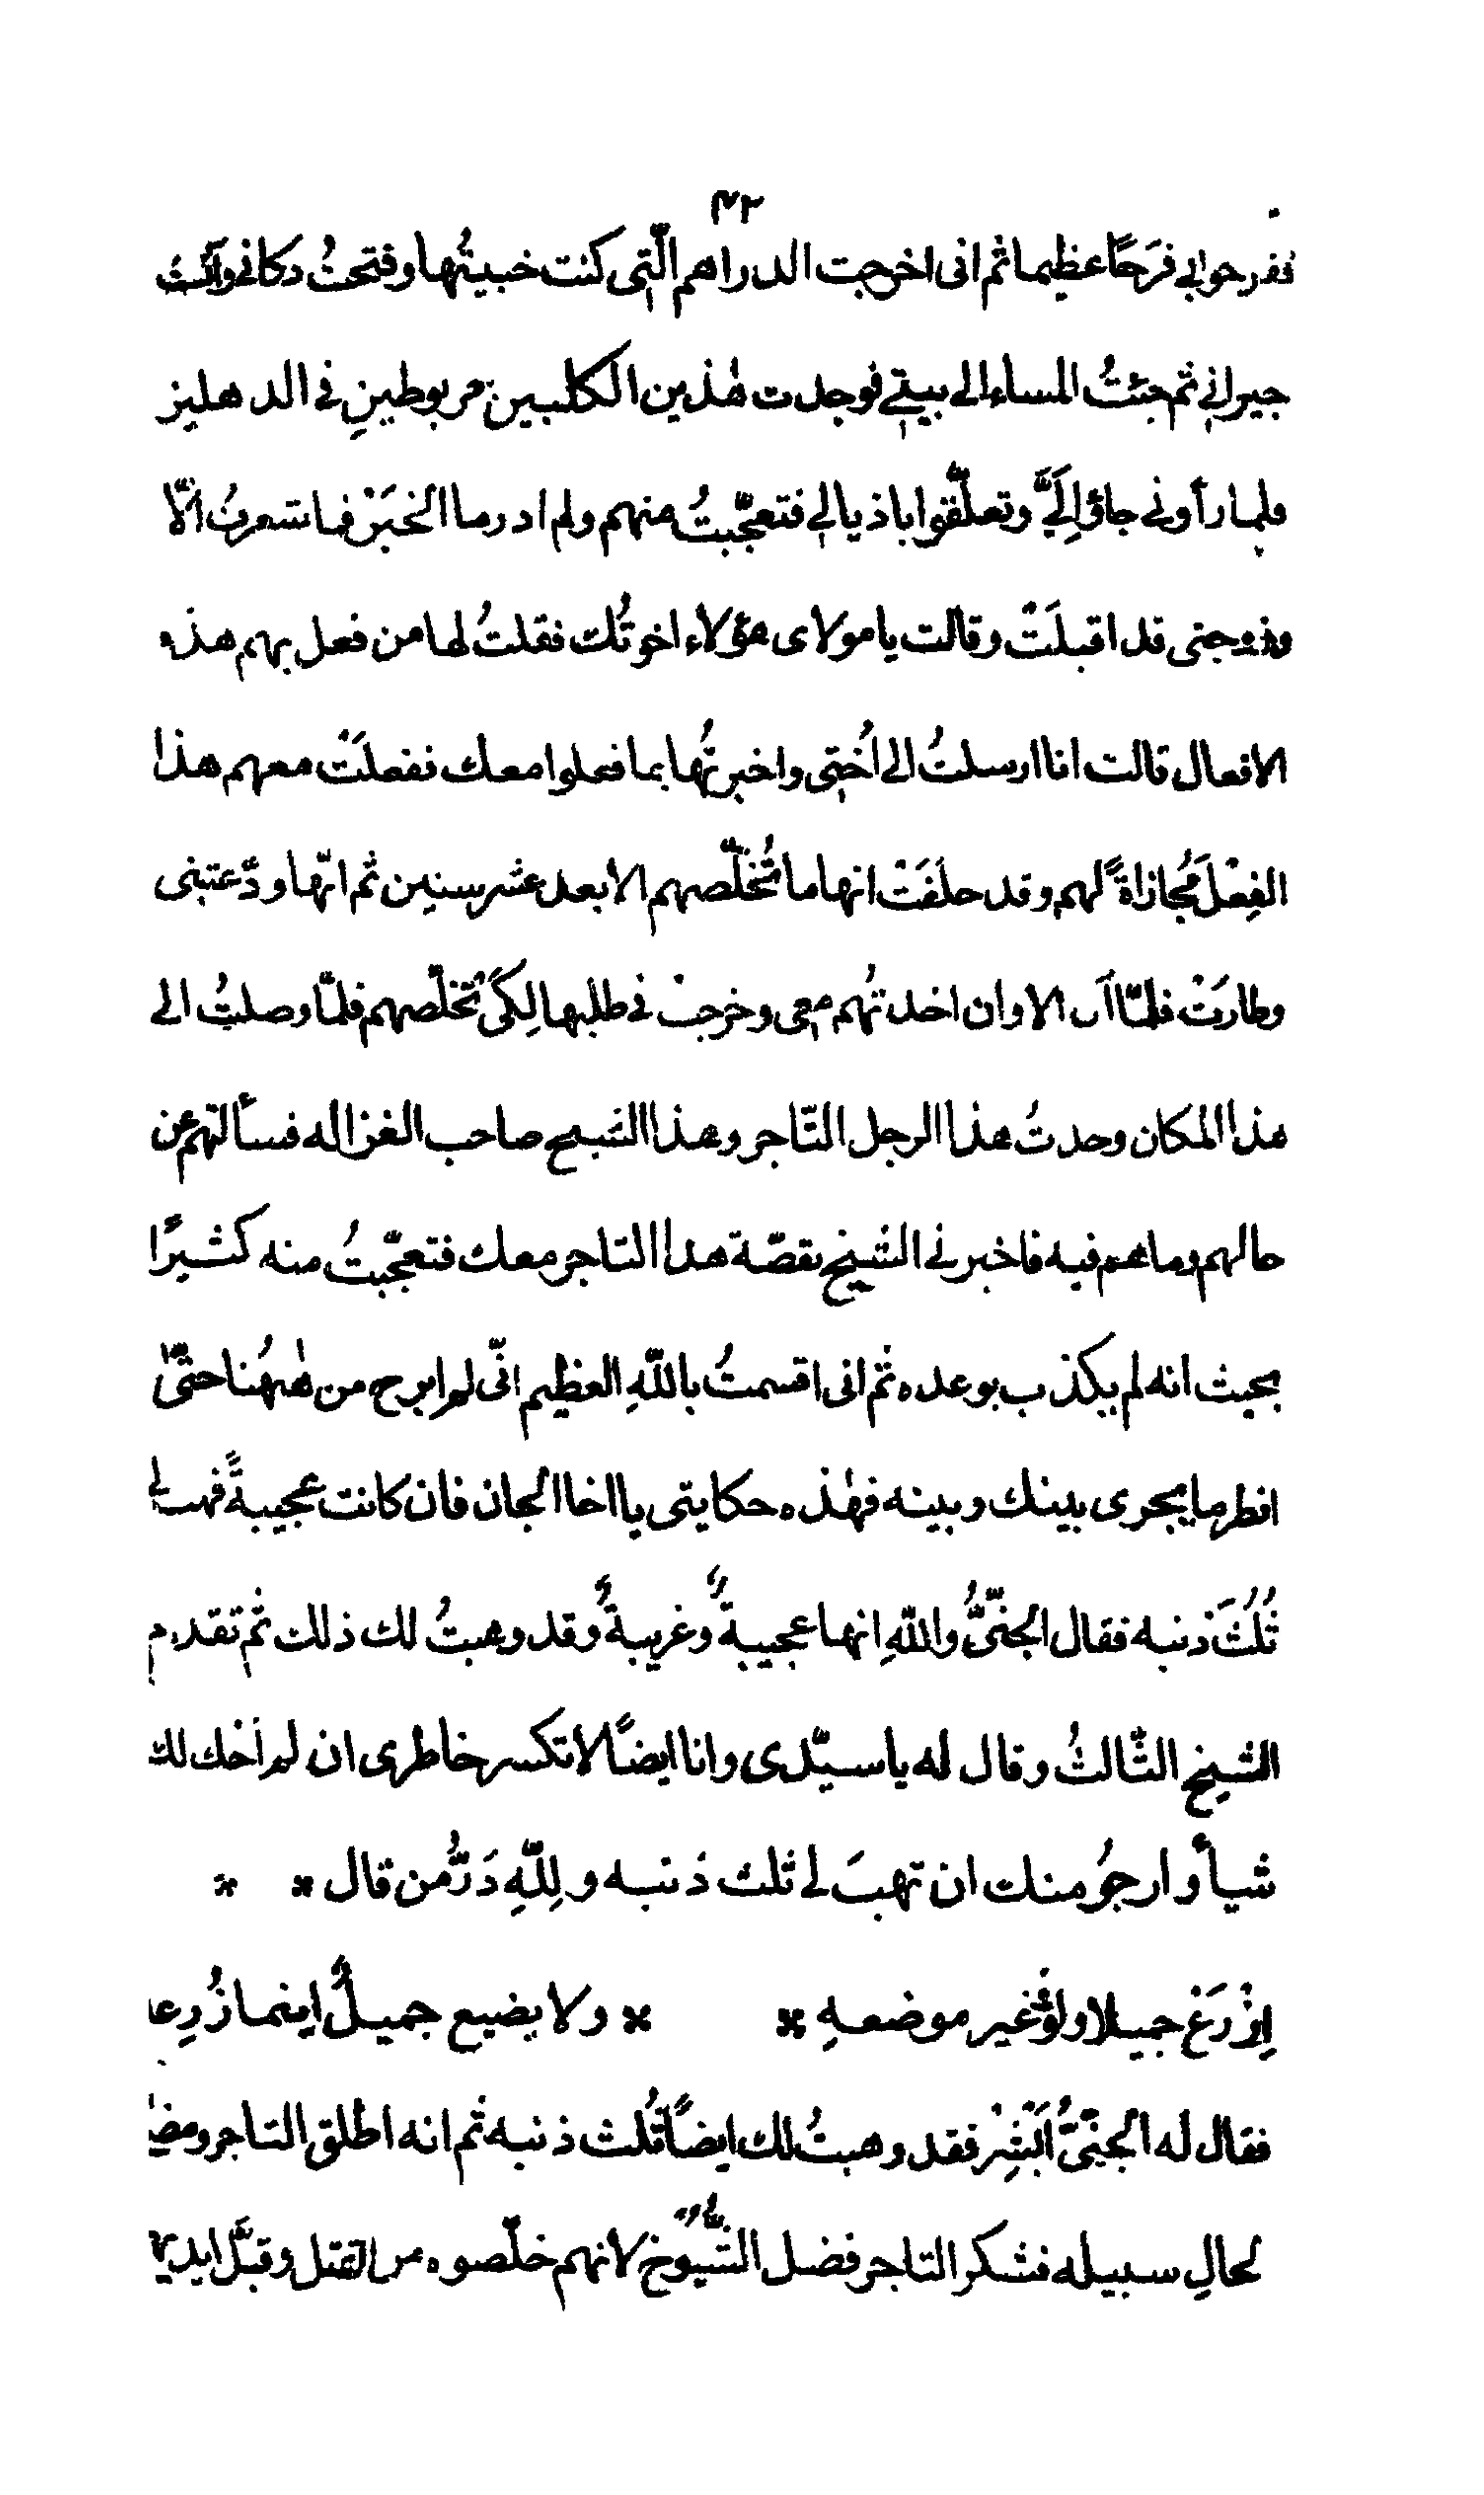 ٣٢
ففرحوا بي فرَحًا عظيما ثم انى اخرجت الدراهم الّتى كنت خبيتُها وفتحتُ دكانى واتت
جيرانى ثم جئتُ المساء الى بيتى فوجدت هٰذين الكلبين مربوطينِ فى الدهليز
فلما رأونى جاؤا اِلَىَّ وتعلّقوا باذيالى فتعجّبتُ منهم ولم ادر ما الخبَرْ فما شعرتُ اِلّا
وزوجتى قد اقبلَتْ وقالت يا مولاى هؤلاء اخوتُك فقلتُ لها من فعل بهم هذه
الافعال قالت انا ارسلتُ الى اُختى واخبرتُها بما فعلوا معك ففعلَتْ معهم هذا
الفِعْلَ مُجازاةً لهم وقد حلَفَتْ انها ما تُخَلّصهم الا بعد عشر سنين ثم انّها ودّعتنى
وطارَتْ فلمّا آن الاوان اخذتُهم معى وخرجت فى طلبها لِكَىْ تُخلّصهم فلمّا وصلتُ الى
هذا المكان وجدتُ هذا الرجل التّاجر وهذا الشيخ صاحب الغزاله فسألتهم عن
حالهم وما هم فيه فاخبرنى الشيخ بقصّة هذا التاجر معك فتعجّبتُ منه كثيرًا
بحيث انه لم يكذب بوعده ثم انى اقسمتُ باللّهِ العظيم انّى لم ابرح من هٰهُنا حتّىٰ
انظر ما يجرى بينك وبينه فهٰذه حكايتى يا اخا الجان فان كانت عجيبةً فهب لى
ثُلُثَ ذنبه فقال الجنّىُّ واللّهِ انها عجيبةً وغريبةً وقد وهبتُ لك ذلك ثم تقدم
الشيخ الثّالثُ وقال له يا سيّدى وانا ايضًا لا تكسر خاطرى ان لم اَحْك لك
شيأ وارجوُ منك ان تهبَ لى ثلث ذَنبه ولِلّهِ دَرُّ من قال * *
اِزْرَعْ جميلا ولوْ فى غير موضعهِ * * ولا يضيع جميلٌ اينما زُرِعا
فقال له الجنّىُّ اَبْشِرْ فقد وهبتُ لك ايضًا ثُلث ذنبه ثم انه اطلق التاجر ومضىٰ
لحالِ سبيله فشكر التاجر فضل الشُّيُوخ لانهم خلّصوه من القتل وقبّل ايديهم